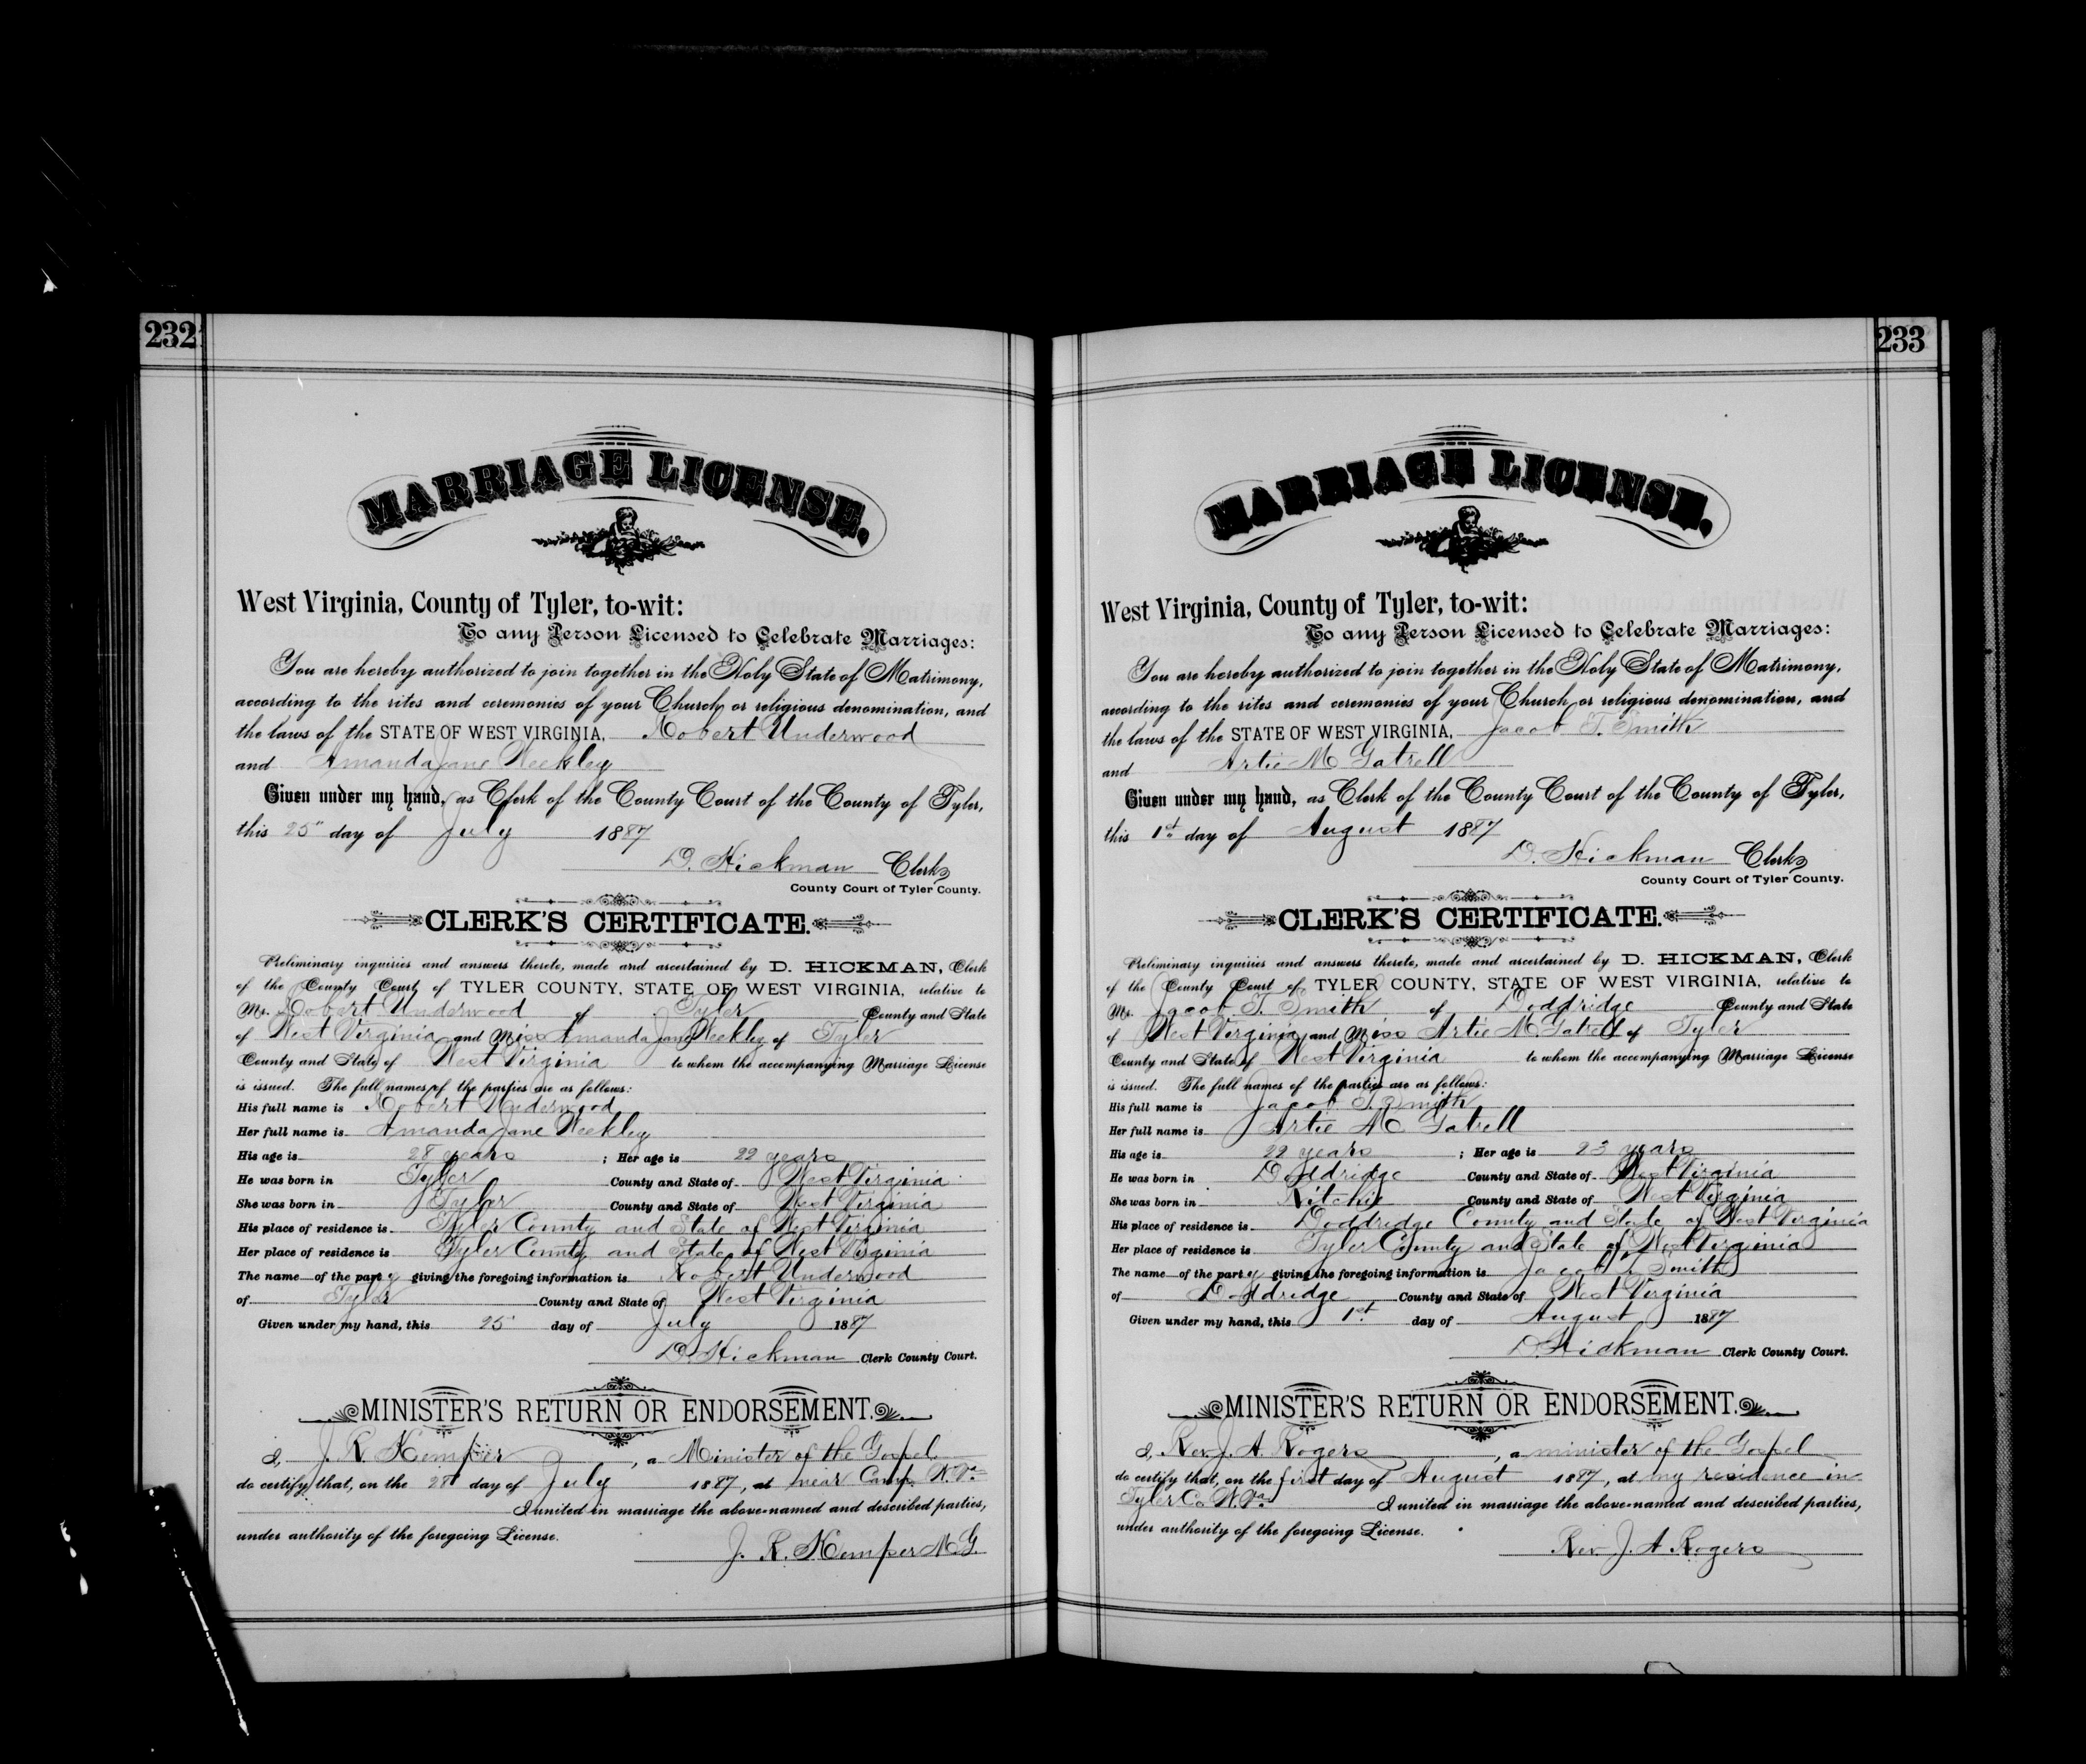 232
MARRIAGE LICENSE.
West Virginia, County of Tyler, to-wit:
To any Person Licensed to Celebrate Marriages:
You are hereby authorized to join together in the Holy State of Matrimony,
according to the rites and ceremonies of your Church or religious denomination, and
the laws of the STATE OF WEST VIRGINIA, Robert Underwood
and Amanda Jane Weekley
Given under my hand, as Clerk of the County Court of the County of Tyler,
this 25" day of July 1887
D. Hickman Clerk
County Court of Tyler County.
CLERK'S CERTIFICATE.
Preliminary inquiries and answers thereto, made and ascertained by D. HICKMAN, Clerk
of the County Court of TYLER COUNTY, STATE OF WEST VIRGINIA, relative to
Mr. Robert Underwood of Tyler County and State
of West Virginia and Miss Amanda Jane Weekley of Tyler
County and State of West Virginia to whom the accompanying Marriage License
is issued. The full names of the parties are as follows:
His full name is Robert Underwood
Her full name is Amanda Jane Weekley
His age is 28 years ; Her age is 22 years
He was born in Tyler County and State of West Virginia
She was born in Tyler County and State of West Virginia
His place of residence is Tyler County and State of West Virginia
Her place of residence is Tyler County and State of West Virginia
The name of the party giving the foregoing information is Robert Underwood
of Tyler County and State of West Virginia
Given under my hand, this 25" day of July 1887
D. Hickman Clerk County Court.
MINISTER'S RETURN OR ENDORSEMENT.
I, J. R. Kemper, a Minister of the Gospel
do certify that, on the 28" day of July 1887, at near Camp W. Va.
I united in marriage the above-named and described parties,
under authority of the foregoing License.
J. R. Kemper M.G.
233
MARRIAGE LICENSE.
West Virginia, County of Tyler, to-wit:
To any Person Licensed to Celebrate Marriages:
You are hereby authorized to join together in the Holy State of Matrimony,
according to the rites and ceremonies of your Church or religious denomination, and
the laws of the STATE OF WEST VIRGINIA, Jacob T. Smith
and Artie M Gatrell
Given under my hand, as Clerk of the County Court of the County of Tyler,
this 1st day of August 1887
D. Hickman Clerk
County Court of Tyler County.
CLERK'S CERTIFICATE.
Preliminary inquiries and answers thereto, made and ascertained by D. HICKMAN, Clerk
of the County Court of TYLER COUNTY, STATE OF WEST VIRGINIA, relative to
Mr. Jacob T. Smith of Doddridge County and State
of West Virginia and Miss Artie M Gatrell of Tyler
County and State of West Virginia to whom the accompanying Marriage License
is issued. The full names of the parties are as follows:
His full name is Jacob T. Smith
Her full name is Artie M Gatrell
His age is 22 years ; Her age is 23 years
He was born in Doddridge County and State of West Virginia
She was born in Ritchie County and State of West Virginia
His place of residence is Doddridge County and State of West Virginia
Her place of residence is Tyler County and State of West Virginia
The name of the party giving the foregoing information is Jacob T. Smith
of Doddridge County and State of West Virginia
Given under my hand, this 1st day of August 1887
D. Hickman Clerk County Court.
MINISTER'S RETURN OR ENDORSEMENT.
I, Rev. J. A. Rogers, a minister of the Gospel
do certify that, on the first day of August 1887, at my residence in
Tyler Co W. Va. I united in marriage the above-named and described parties,
under authority of the foregoing License.
Rev. J. A Rogers